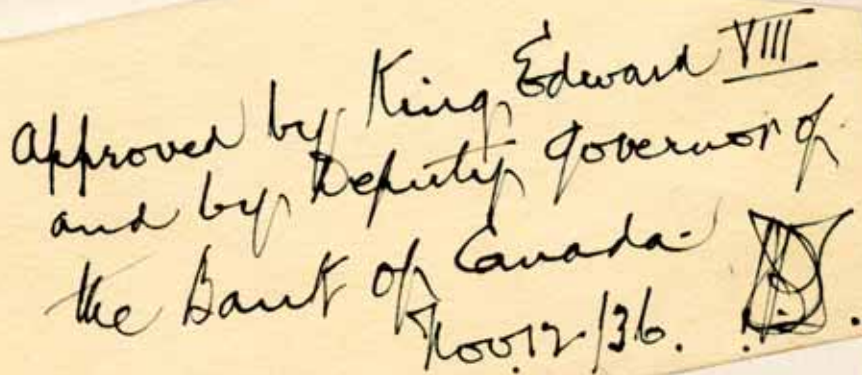 approved by King Edward VIII
and by Deputy Governor of
the Bank of Canada.
Nov. 12/36.